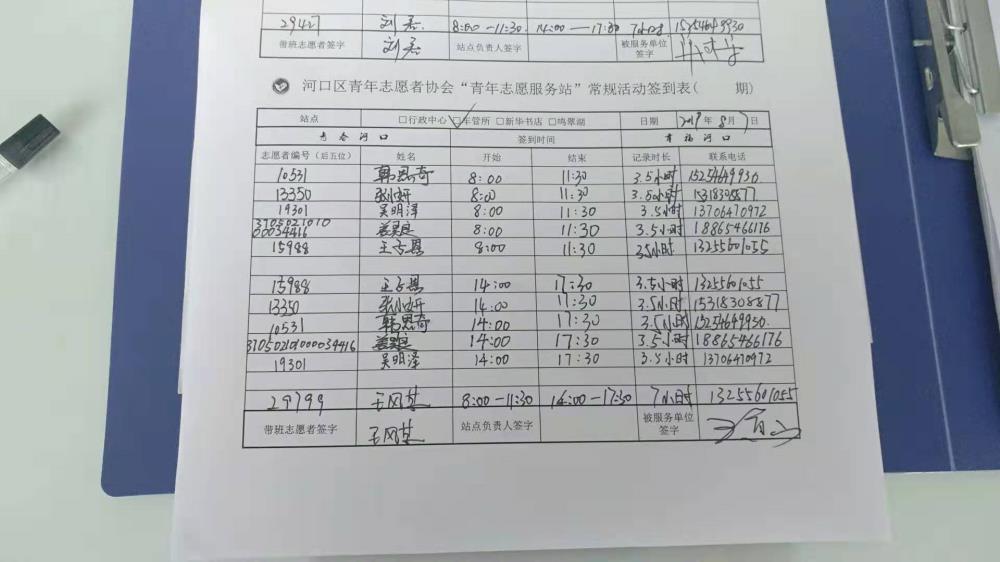 29427 刘磊 8:00-11:30 14:00-17:30 7小时
带班志愿者签字 刘磊 站点负责人签字 被服务单位签字
河口区青年志愿者协会“青年志愿服务站”常规活动签到表( 期)
站点 □行政中心 ☑车管所 □新华书店 □鸣翠湖 日期 2019年8月7日
青春河口 签到时间 幸福河口
志愿者编号(后五位) 姓名 开始 结束 记录时长 联系电话
10531 韩思奇 8:00 11:30 3.5小时 15254649930
13350 张小妍 8:00 11:30 3.5小时 15318308877
19301 吴明泽 8:00 11:30 3.5小时 13706470972
370502101000034416 8:00 11:30 3.5小时 18865466176
15988 8:00 11:30 3.5小时 13255601055
15988 14:00 17:30 3.5小时 13255601055
13350 张小妍 14:00 17:30 3.5小时 15318308877
10531 韩思奇 14:00 17:30 3.5小时 15254649930
370502101000034416 14:00 17:30 3.5小时 18865466176
19301 吴明泽 14:00 17:30 3.5小时 13706470972
29799 8:00-11:30 14:00-17:30 7小时 13255601055
带班志愿者签字 站点负责人签字 被服务单位签字